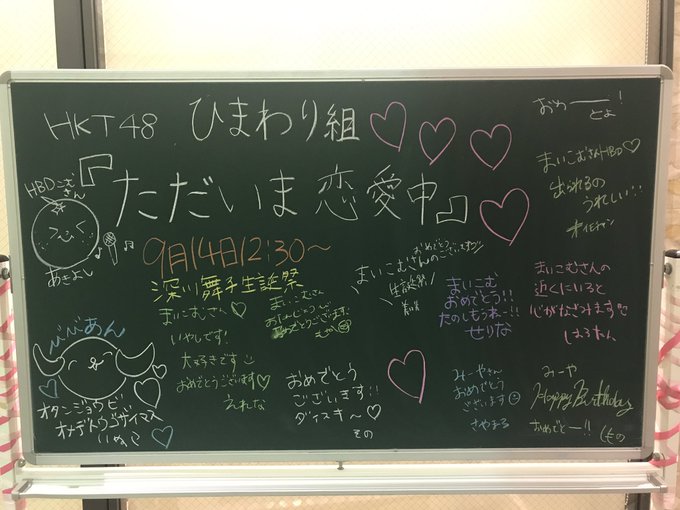 HKT48 ひまわり組
『ただいま恋愛中』
9月14日12:30～
深川舞子生誕祭
HBDこむさん
あきよし
びびあん
オタンジョウビ
オメデトウゴザイマス
まいこむさん♡
いやしです!
大好きです
おめでとうございます♡
えれな
まいこむさん
おめでとうございます
おめでとう
ございます!!
ダイスキ〜♡
その
おめでとうございます
まいこむさんの
生誕祭!
まいこむ
おめでとう!!
たのしもうねー!!
せりな
みーやさん
おめでとう
ございます
さやまる
おめ――とよ!
まいこむさんHBD♡
出られるの
うれしい!!!
まいこむさんの
近くにいると
心がなごみます♡
はるたん
みーや
Happy Birthday
おめでとー!!